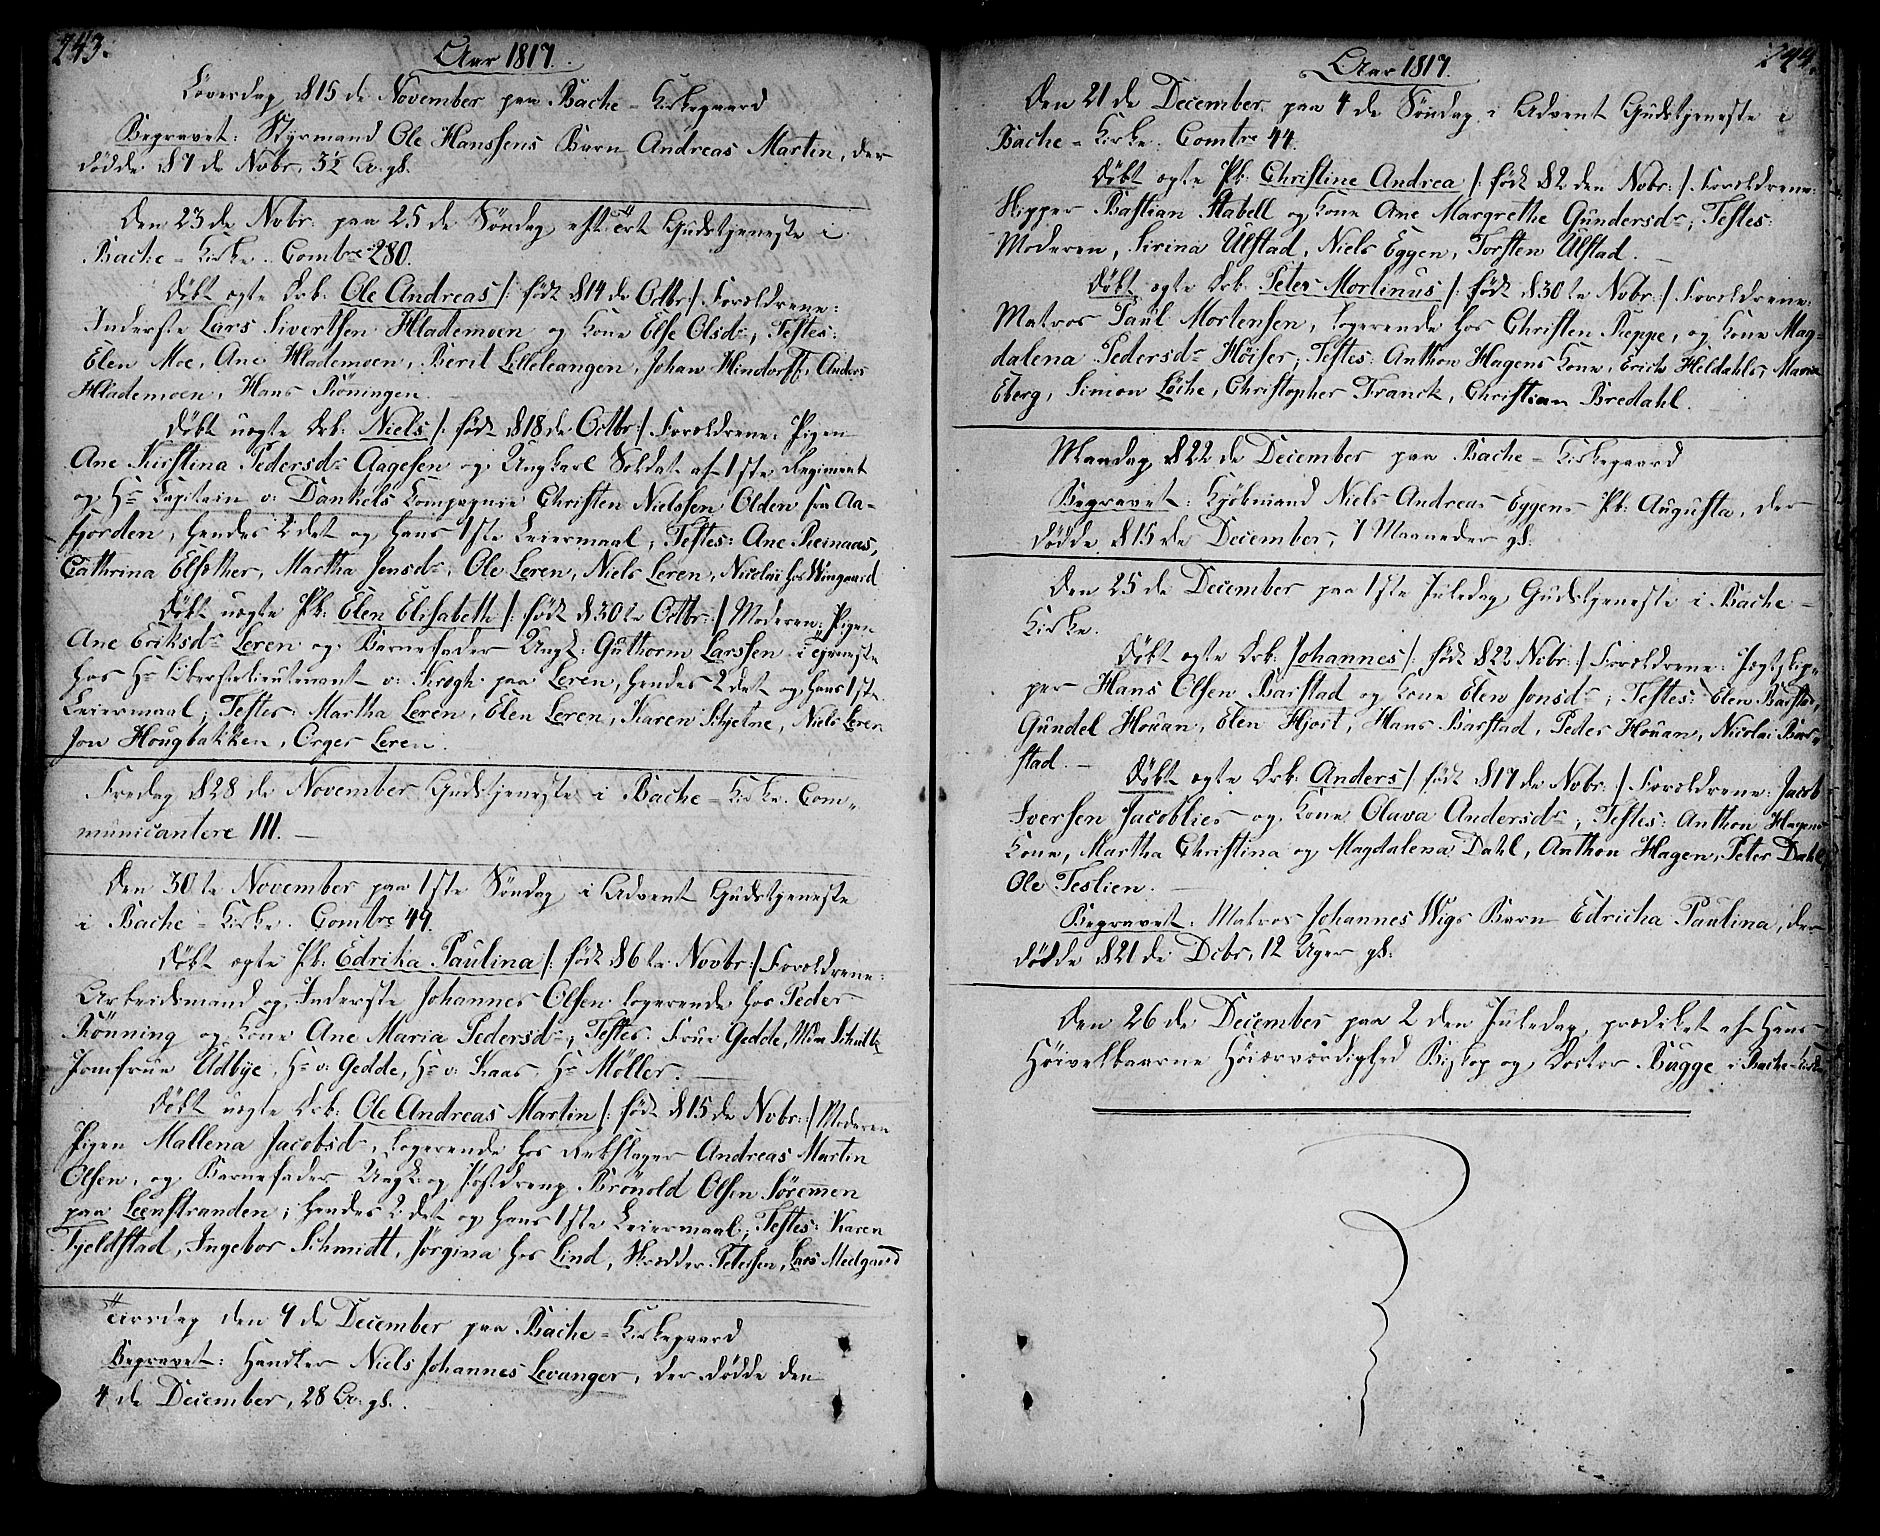 243.
Aar 1817.
Löverdag d 15 de November paa Bache=Kirkegaard
Begravet: Styrmand Ole Hanssens Barn Andreas Martin, der
dödde d 7 de Nobr, 3½ Ar. gl.
Den 23 de Nobr: paa 25 de Söndag eft: Gudstjeneste i
Bache=Kirke. Combre 280.
Döbt ægte Drb: Ole Andreas /: födt d 14 de Octbr :/ Foreldrene:
Inderste Lars Sivertsen Hlademoen og Kone Else Olsdr; Testes:
Elen Moe, Ane Hlademoen, Berit Lilleleangen, Johan Hindorff, Anders
Hlademoen, Hans Röningen.
Döbt uægte Drb: Niels /: födt d 18 de Octbr :/ Foreldrene: Pigen
Ane Kirstina Pedersdr Aagesen og Ungkarl Soldat af 1ste Regiment
og Hr Capitain v: Dankels Compagnie Christen Nielssen Olden fra Aa-
fjorden, hendes 2 det og hans 1ste Leiermaal; Testes: Ane Reinaas,
Cathrina Elsther, Martha Jensdr, Ole Leren, Niels Leren, Nicolai hos Wingaard
Döbt uægte Pb: Elen Elisabeth /: födt d 30 te Octbr :/ Moderen: Pigen
Ane Eriksdr Leren og Barnefader Ungk: Guthorm Larssen i tjeneste
hos Hr Oberstlieutenant v: Krogh paa Leren, hendes 2 det og hans 1ste
Leiermaal; Testes: Martha Leren, Elen Leren, Karen Stjetne, Niels Leren
Jon Hougbakken, Orger Leren.
Fredag d 28 de November Gudstjeneste i Bache=Kirke. Com-
municantere 111.
Den 30 te November paa 1ste Söndag i Advent Gudstjeneste
i Bache=Kirke. Combre 49.
Döbt ægte Pb: Edrika Paulina /: födt d 6 te Novbr :/ Foreldrene:
Arbeidsmand og Inderste Johannes Olsen logerende hos Peder
Rönning og Kone Ane Maria Pedersdr; Testes: Frue Gedde, Mdm Schult
Jomfrue Udbye, Hr v: Gedde, Hr v: Kaas, Hr Möller.
Döbt uægte Drb: Ole Andreas Martin /: födt d 15 de Nobr :/ Moderen
Pigen Mallena Jacobsdr, logerende hos Rebslager Andreas Martin
Olsen, og Barnefader Ungk: og Postdreng Brönold Olsen Sörem̅en
paa Leenstranden, hendes 2 det og hans 1ste Leiermaal; Testes: Karen
Tjeldstad, Ingebor Schmidt, Jörgina hos Lind, Skredder Petersen, Lars Medgaard
Tirsdag den 9 de December paa Bache=Kirkegaard
Begravet: Handler Niels Johannes Levanger, der dödde den
4 de December, 28 Ar. gl.
244.
Aar 1817.
Den 21 de December paa 4 de Söndag i Advent Gudstjeneste i
Bache=Kirke. Combre 44.
Döbt ægte Pb: Christine Andrea /: födt d 2 den Nobr: / Foreldrene:
Skipper Bastian Stabell og Kone Ane Margrethe Gundersdr; Testes:
Moderen, Sirina Ulstad, Niels Eggen, Torsten Ulstad.
Döbt ægte Drb: Peter Mortinus /: födt d 30 te Nobr :/ Foreldrene:
Matros Paul Mortensen, logerende hos Christen Reppe, og Kone Mag-
dalena Pedersdr Höiser; Testes: Anthon Hagens Kone, Erich Heldahls, Maria
Eberg, Simon Löche, Christopher Franck, Christian Bredahl.
Mandag d 22 de December paa Bache=Kirkegaard
Begravet: Kjöbmand Niels Andreas Eggens Pb: Augusta, der
dödde d 15 de December, 7 Maaneder gl.
Den 25 de December paa 1ste Juledag Gudstjeneste i Bache-
Kirke.
Döbt ægte Drb: Johannes /: födt d 22 Nobr :/ Foreldrene: Jagtskip-
per Hans Olsen Barstad og Kone Elen Jonsdr; Testes: Elen Barstad,
Gundel Houan, Elen Hjort, Hans Barstad, Peder Houan, Nicolai Bar-
stad.
Döbt ægte Drb: Anders / födt d 17 de Nobr: / Foreldrene: Jacob
Iversen Jacoblies og Kone Olava Andersdr; Testes: Anthon Hagens
Kone, Martha Christina og Magdalena Dahl, Anthon Hagen, Peter Dahl,
Ole Teslien.
Begravet: Matros Johannes Wigs Barn Edricha Paulina, der
dödde d 21 de Decbr, 12 Uger gl.
Den 26 de December paa 2 den Juledag prædiket af Hans
Höivelbaarne Höiærværdighed Biskop og Doctor Bugge i Bache=Kirke